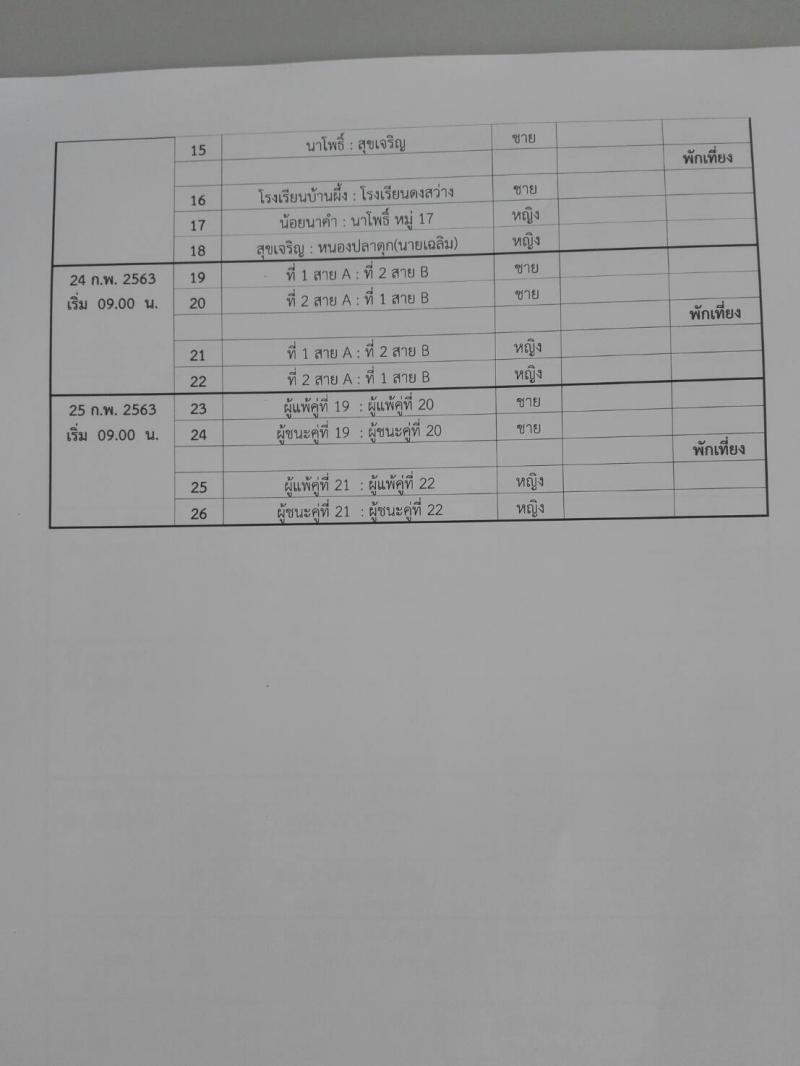 15 นาโพธิ์ : สุขเจริญ ชาย
พักเที่ยง
16 โรงเรียนบ้านผึ้ง : โรงเรียนดงสว่าง ชาย
17 น้อยนาคำ : นาโพธิ์ หมู่ 17 หญิง
18 สุขเจริญ : หนองปลาดุก(นายเฉลิม) หญิง
24 ก.พ. 2563 19 ที่ 1 สาย A : ที่ 2 สาย B ชาย
เริ่ม 09.00 น. 20 ที่ 2 สาย A : ที่ 1 สาย B ชาย
พักเที่ยง
21 ที่ 1 สาย A : ที่ 2 สาย B หญิง
22 ที่ 2 สาย A : ที่ 1 สาย B หญิง
25 ก.พ. 2563 23 ผู้แพ้คู่ที่ 19 : ผู้แพ้คู่ที่ 20 ชาย
เริ่ม 09.00 น. 24 ผู้ชนะคู่ที่ 19 : ผู้ชนะคู่ที่ 20 ชาย
พักเที่ยง
25 ผู้แพ้คู่ที่ 21 : ผู้แพ้คู่ที่ 22 หญิง
26 ผู้ชนะคู่ที่ 21 : ผู้ชนะคู่ที่ 22 หญิง